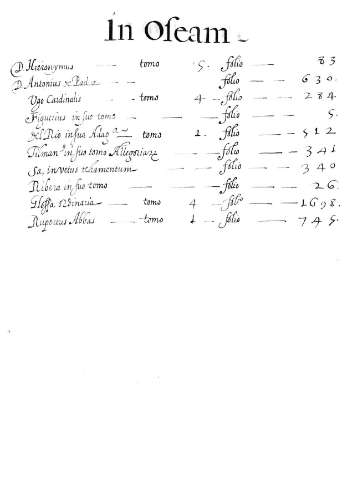 In Oseam
D. Hieronymus — tomo 5. folio — 83
D. Antonius de Padua folio — 630.
Ugo Cardinalis — tomo 4 — folio — 284
Figueirus in suo tomo — folio — 5.
del Rio in sua Adag. tomo 2. folio — 512
Tilman in suo tomo Allegoriarũ — folio — 341
Sa, in vetus testamentum — folio — 340
Ribera in suo tomo — folio — 26
Glossa ordinaria — tomo 4 — folio — 1698.
Rupertus Abbas — tomo 1 — folio — 745.